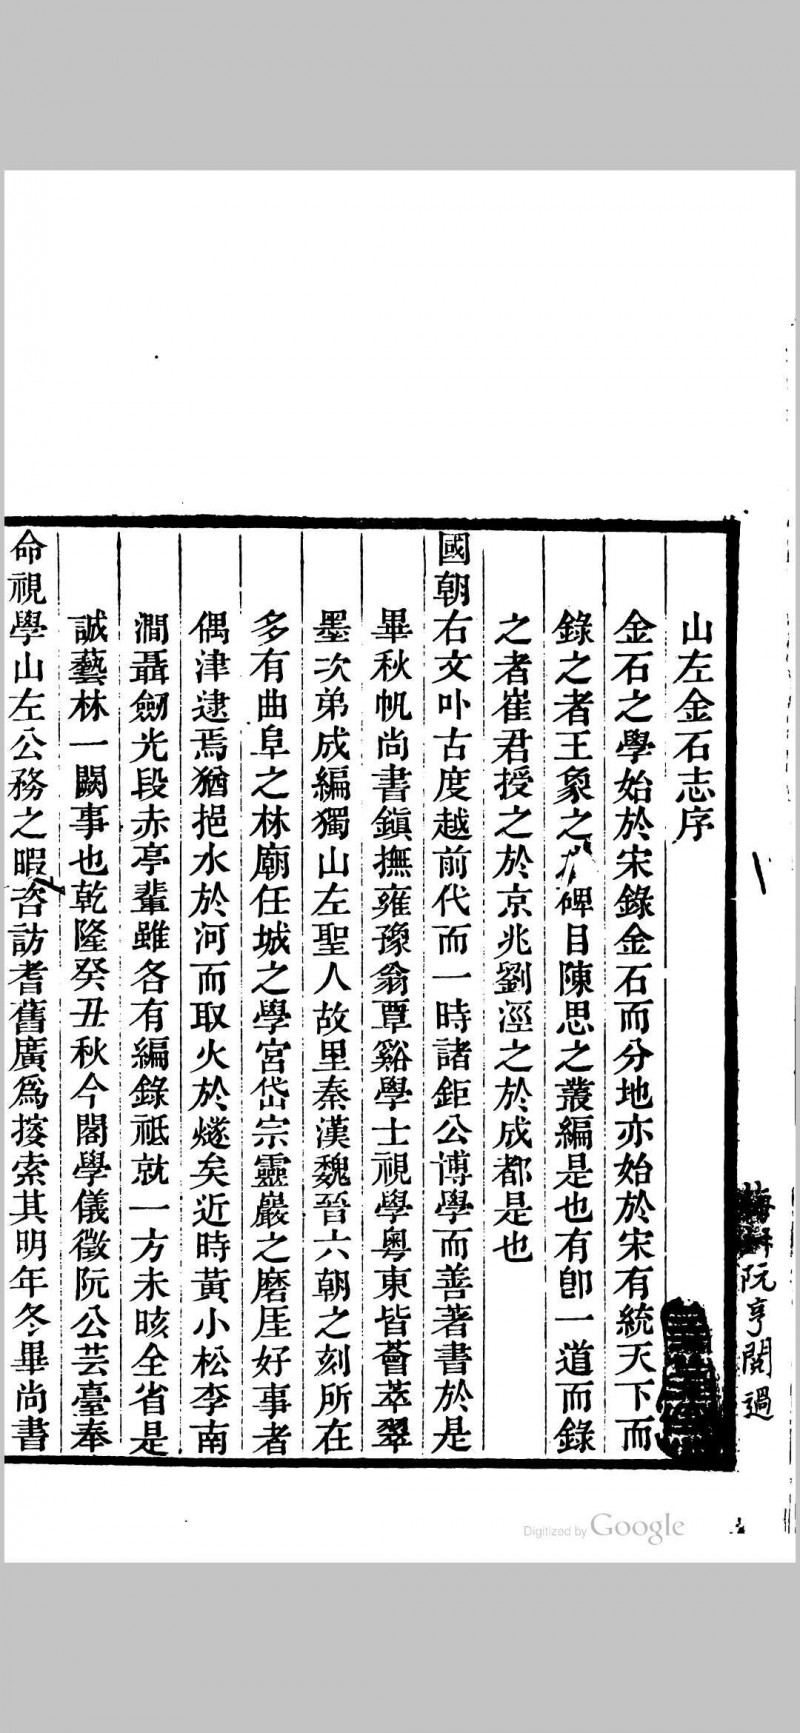 山左金石志序
金石之學始於宋錄金石而分地亦始於宋有統天下而
錄之者王象之碑目陳思之叢編是也有卽一道而錄
之者崔君授之於京兆劉涇之於成都是也
國朝右文卟古度越前代而一時諸鉅公博學而善著書於是
畢秋帆尚書鎮撫雍豫翁覃谿學士視學粵東皆薈萃翠
墨次弟成編獨山左聖人故里秦漢魏晉六朝之刻所在
多有曲阜之林廟任城之學宮岱宗靈巖之磨厓好事者
偶津逮焉猶挹水於河而取火於燧矣近時黃小松李南
澗聶劒光段赤亭輩雖各有編錄祗就一方未晐全省是
誠藝林一闕事也乾隆癸丑秋今閣學儀徵阮公芸臺奉
命視學山左公務之暇咨訪耆舊廣爲搜索其明年冬畢尚書
阮亨閱過
Digitized by Google